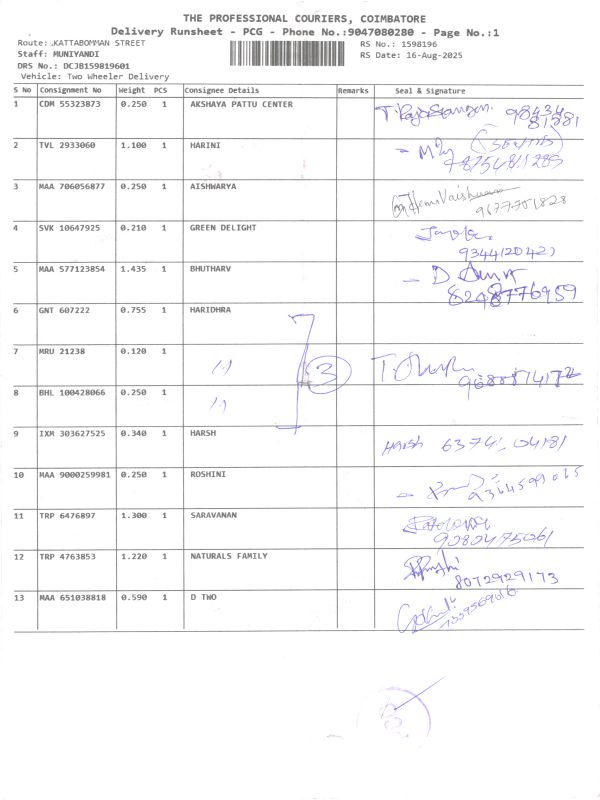 THE PROFESSIONAL COURIERS, COIMBATORE
Delivery Runsheet - PCG - Phone No.:9047080280 - Page No.:1
Route: .KATTABOMMAN STREET
RS No.: 1598196
Staff: MUNIYANDI
RS Date: 16-Aug-2025
DRS No.: DCJB159819601
Vehicle: Two Wheeler Delivery
S No Consignment No Weight PCS Consignee Details Remarks Seal & Signature
1 CDM 55323873 0.250 1 AKSHAYA PATTU CENTER
2 TVL 2933060 1.100 1 HARINI
3 MAA 706056877 0.250 1 AISHWARYA
4 SVK 10647925 0.210 1 GREEN DELIGHT
5 MAA 577123854 1.435 1 BHUTHARV 8248776959
6 GNT 607222 0.755 1 HARIDHRA
7 MRU 21238 0.120 1 3
8 BHL 100428066 0.250 1
9 IXM 303627525 0.340 1 HARSH Harsh 6374 04181
10 MAA 9000259981 0.250 1 ROSHINI
11 TRP 6476897 1.300 1 SARAVANAN 9080475061
12 TRP 4763853 1.220 1 NATURALS FAMILY 8072929173
13 MAA 651038818 0.590 1 D TWO